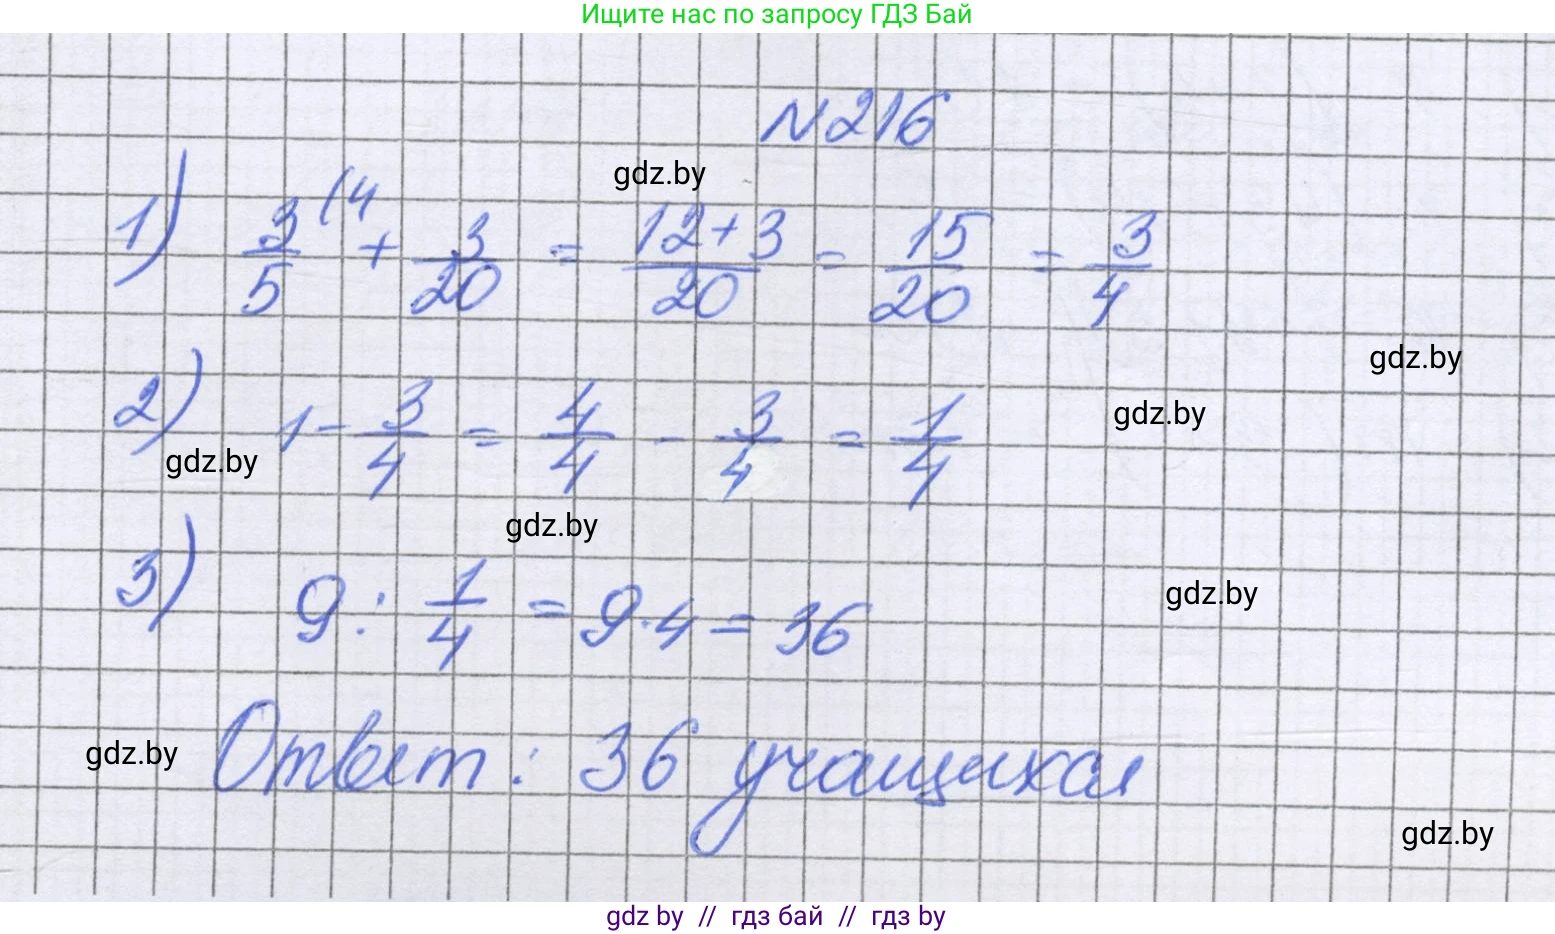 Ищите нас по запросу ГДЗ Бай
N216
gdz.by
1) 3/5 (4 + 3/20 = 12+3/20 = 15/20 = 3/4
gdz.by
2) 1 - 3/4 = 4/4 - 3/4 = 1/4
gdz.by
gdz.by
gdz.by
3) 9 : 1/4 = 9 · 4 = 36
gdz.by
gdz.by
Ответ: 36 учащихся
gdz.by
gdz by // гдз бай // гдз by